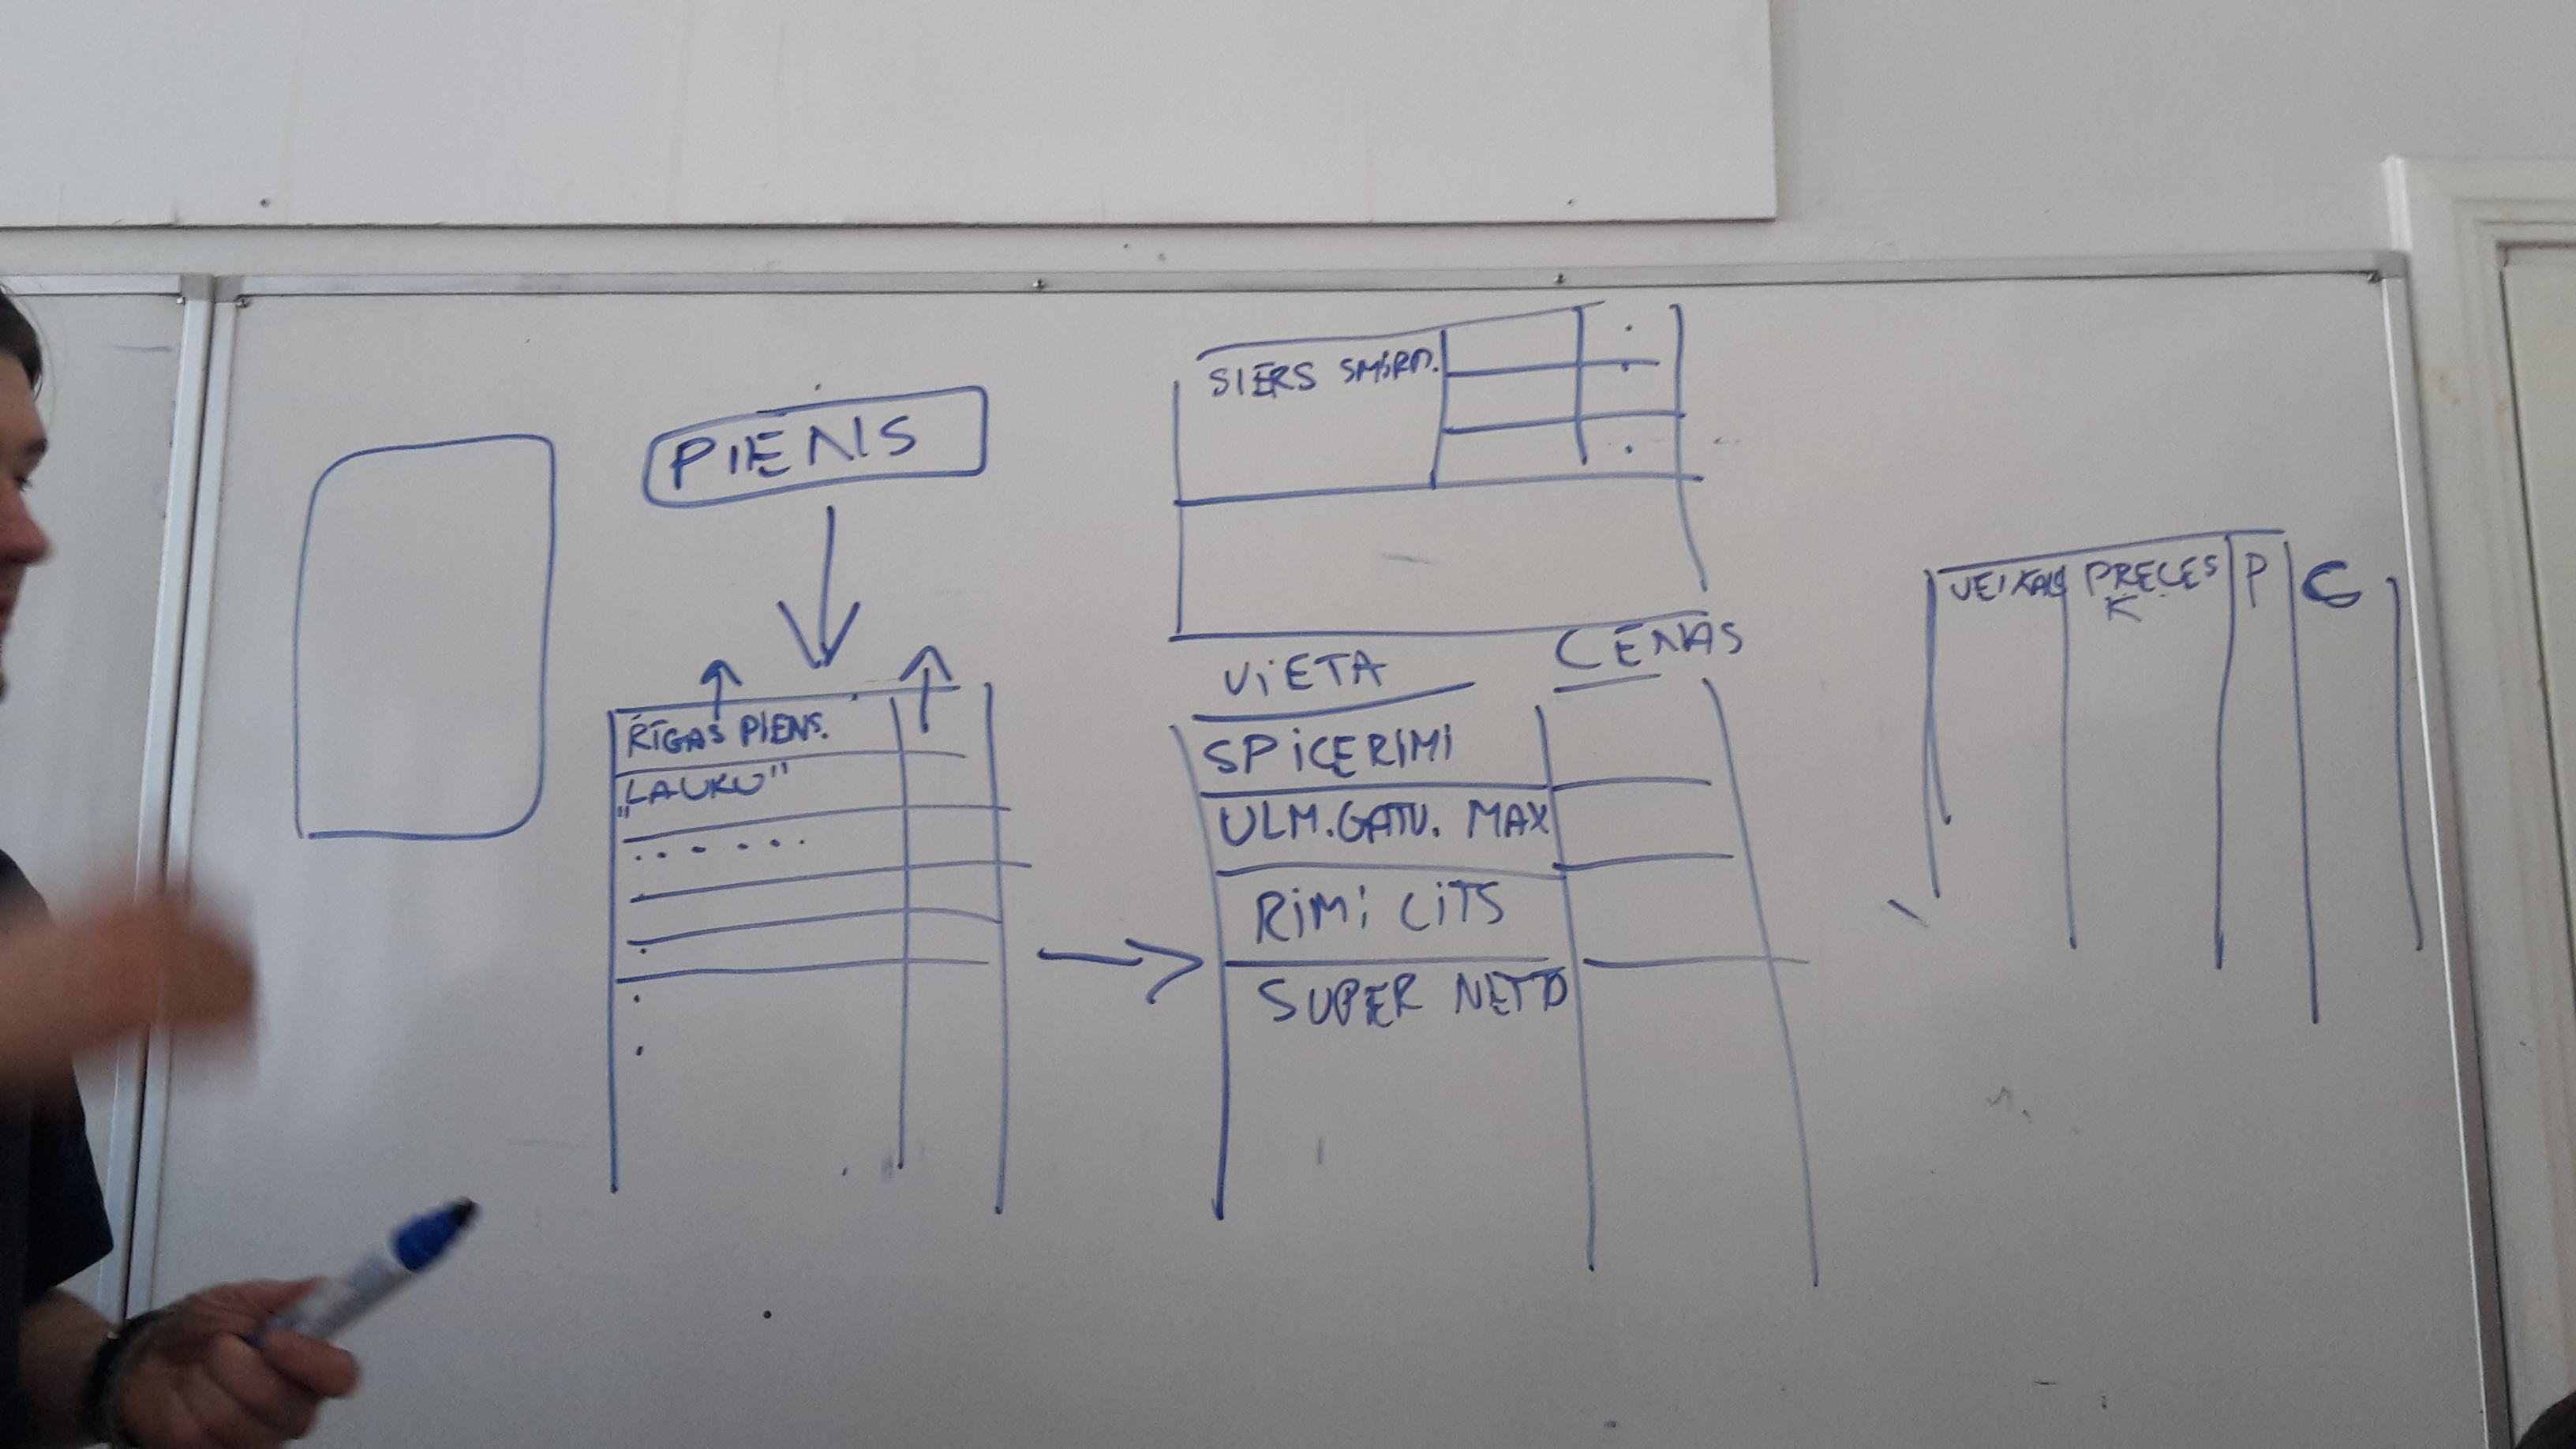 PIENS
RĪGAS PIENS.
"LAUKU"
SIERS SMIRD.
VIETA CENAS
SPICERIMI
ULM.GATV. MAX
RIMI CITS
SUPER NETTO
VEIKALS PRECES P C
K